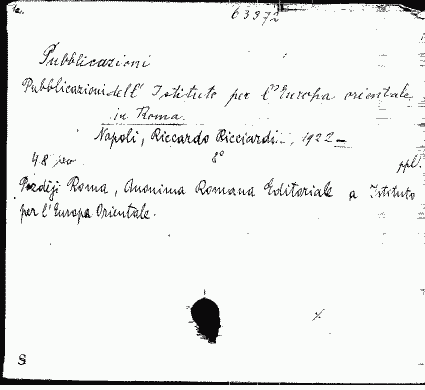 63372
Pubblicazioni
Pubblicazioni dell' Istituto per l'Europa orientale
in Roma.
Napoli, Riccardo Ricciardi.., 1922 –
8°
ppl.
Později Roma, Anonima Romana Editoriale a Istituto
per l'Europa Orientale.